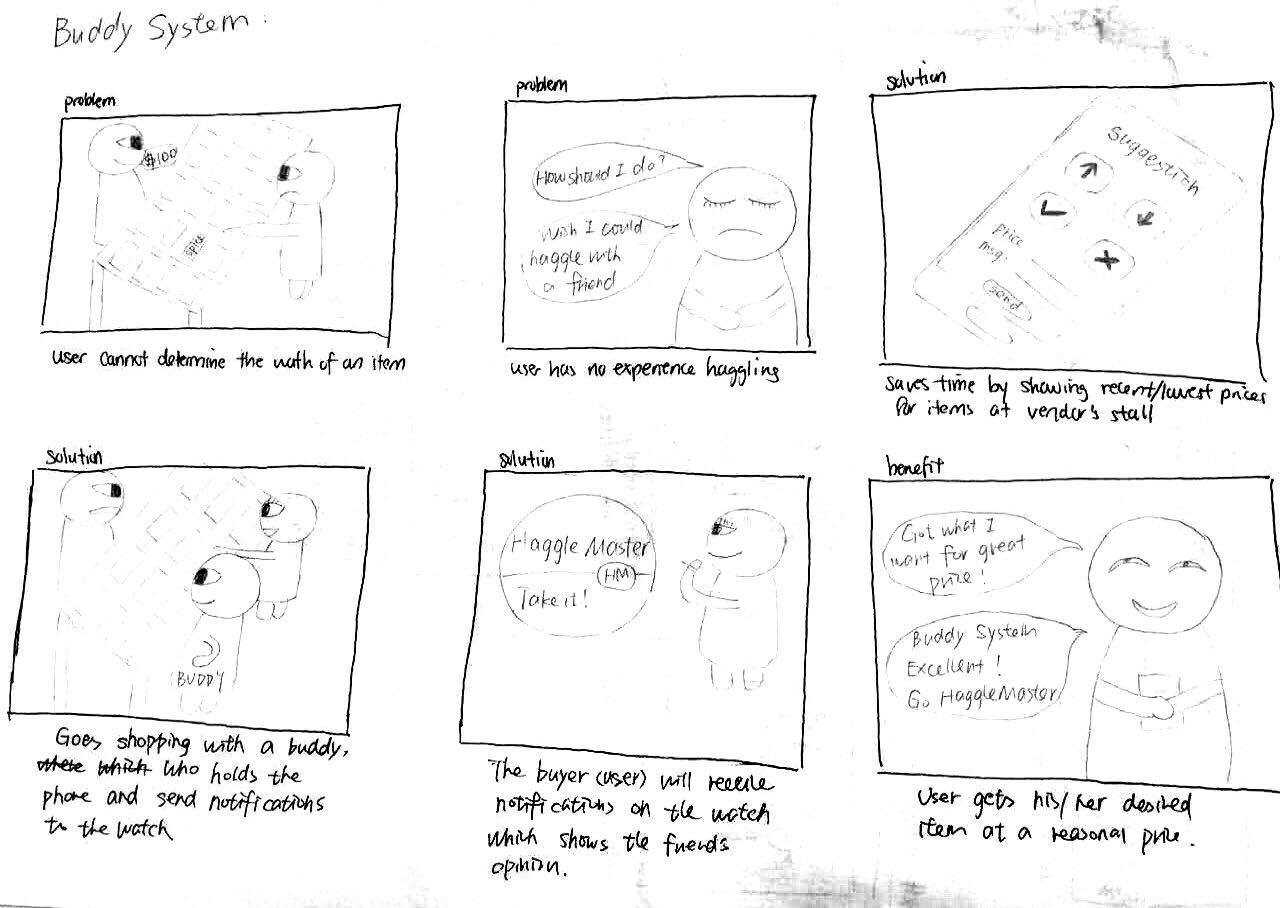 Buddy System:
problem
$100
spice
user cannot determine the woth of an item
problem
How should I do?
Wish I could
haggle with
a friend
user has no experience haggling
solution
Suggestion
price
msg:
send
saves time by showing recent/lowest prices
for items at vendor's stall
solution
BUDDY
Goes shopping with a buddy,
where which who holds the
phone and send notifications
to the watch
solution
Haggle Master
HM
Take it!
The buyer (user) will receive
notifications on the watch
which shows the friends
opinion.
benefit
Got what I
want for great
price!
Buddy System
Excellent!
Go HaggleMaster
User gets his/her desired
item at a reasonal price.